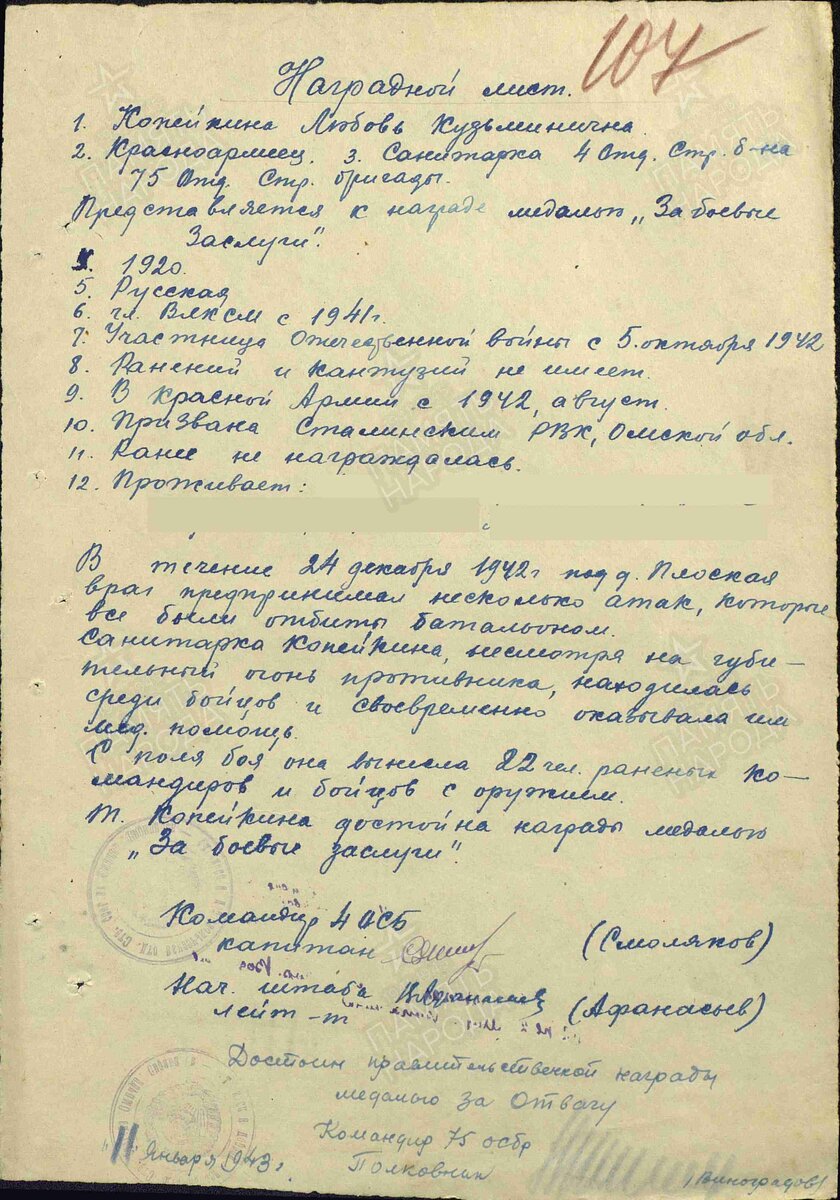 107
Наградной лист.
1. Копейкина Любовь Кузьминична
2. Красноармеец. 3. Санитарка 4 Отд. Стр. б-на
75 Отд. Стр. бригады.
Представляется к награде медалью „За боевые
Заслуги".
4. 1920.
5. Русская
6. чл. ВЛКСМ с 1941 г.
7. Участница Отечественной войны с 5. октября 1942
8. Ранений и кантузий не имеет.
9. В Красной Армии с 1942, август.
10. Призвана Сталинским РВК, Омской обл.
11. Ранее не награждалась.
12. Проживает:
В течение 24 декабря 1942 г под д. Плоская
враг предпринимал несколько атак, которые
все были отбиты батальоном.
Санитарка Копейкина, несмотря на губи-
тельный огонь противника, находилась
среди бойцов и своевременно оказывала им
мед. помощь.
С поля боя она вынесла 22 чел. раненых ко-
мандиров и бойцов с оружием.
Т. Копейкина достойна награды медалью
„За боевые заслуги".
Командир 4 ОСБ
капитан (Смоляков)
Нач. штаба (Афанасьев)
лейт-т
Достоин правительственной награды
медалью За Отвагу
Командир 75 осбр
"11" Января 1943 г. Полковник (Виноградов)
ПАМЯТЬ НАРОДА